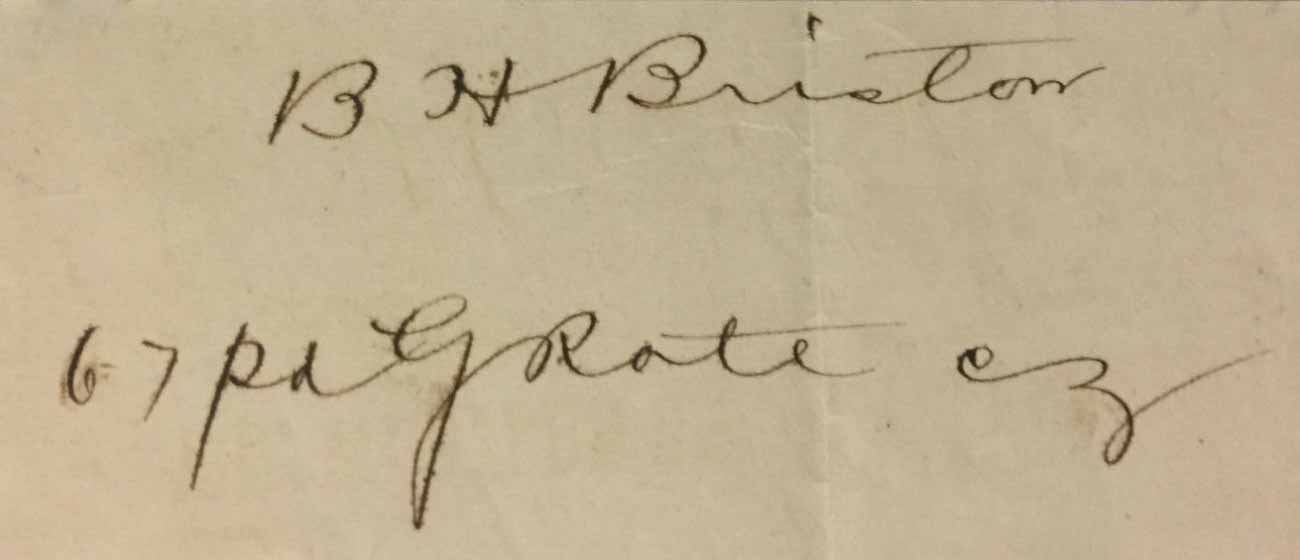 B H Bristow
67 pd G Rate cz